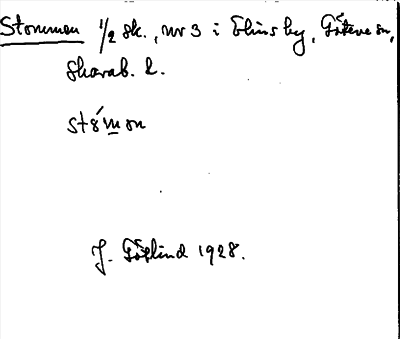 Stommen 1/2 sk., nr 3 i Elinsby, Göteve sn,
Skarab. l.
stómon
J. Götlind 1928.